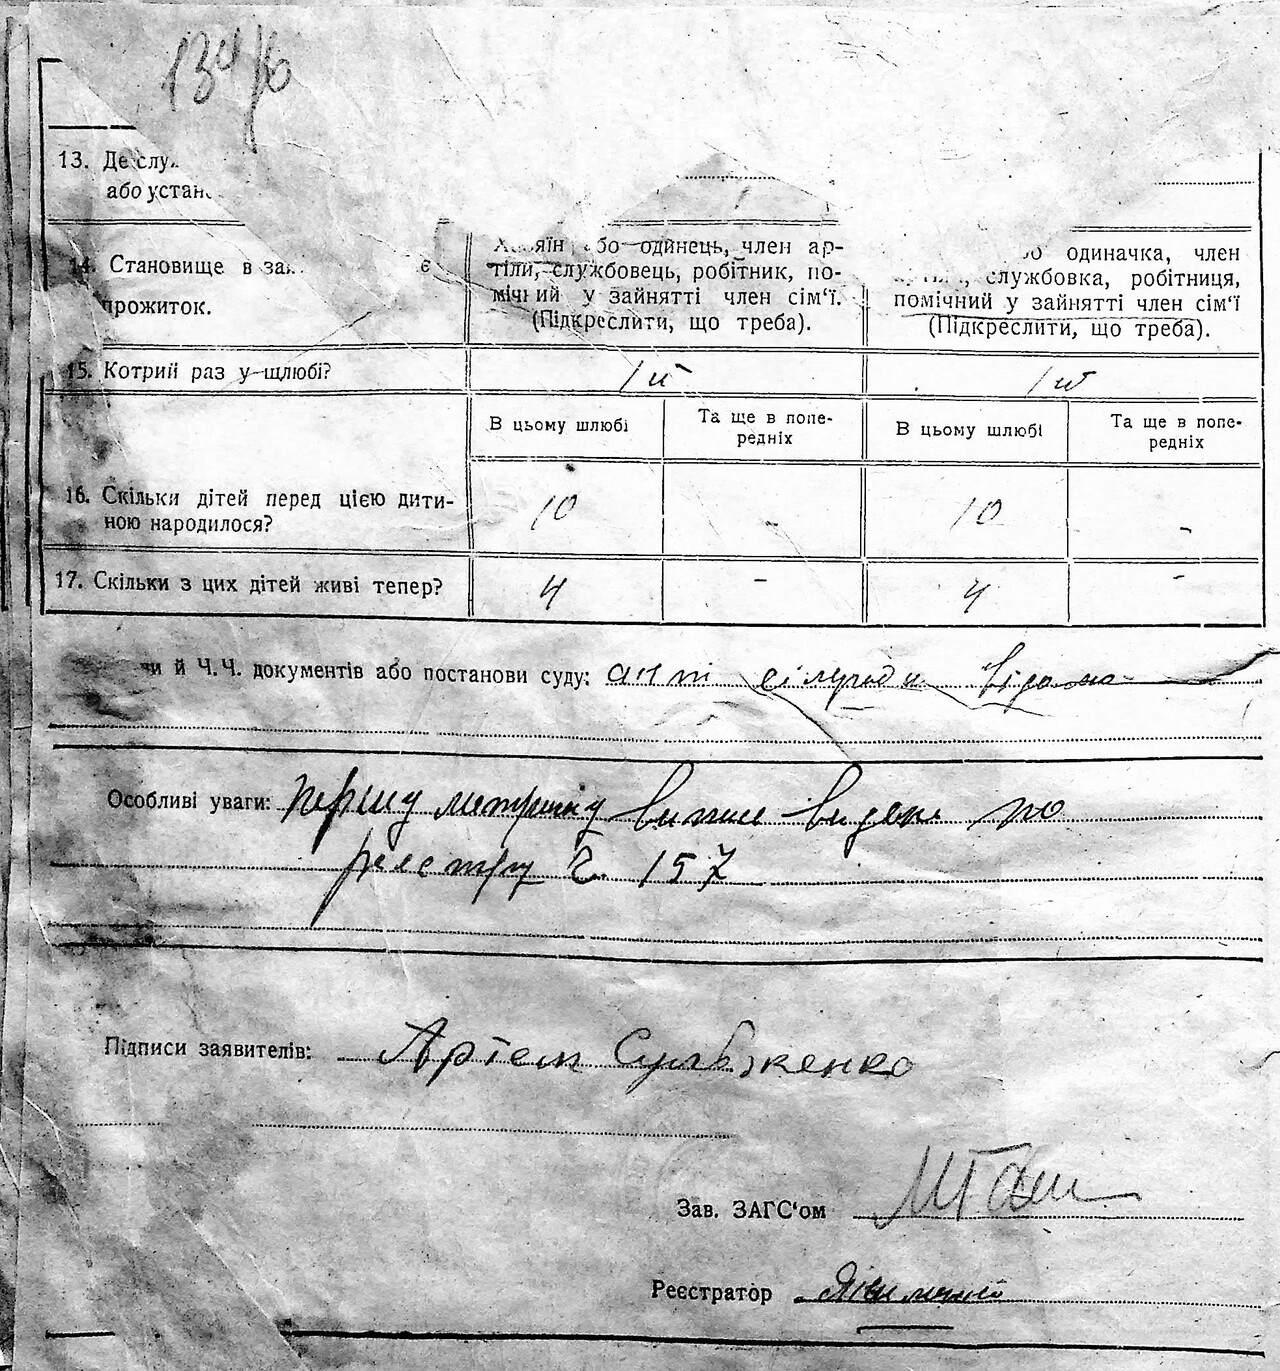 134/6
13. Де слу
або устан
14. Становище в за є
прожиток.
або одинець, член ар-
тіли, службовець, робітник, по-
мічний у зайнятті член сім‘ї.
(Підкреслити, що треба).
одиначка, член
службовка, робітниця,
помічний у зайнятті член сім‘ї
(Підкреслити, що треба).
15. Котрий раз у шлюбі? 1й 1й
В цьому шлюбі Та ще в попе- В цьому шлюбі Та ще в попе-
редніх редніх
16. Скільки дітей перед цією дити-
ною народилося? 10 - 10 -
17. Скільки з цих дітей живі тепер? 4 - 4 -
й Ч.Ч. документів або постанови суду: акт сільради
Особливі уваги: першу метричну випис видано по
реєстру Ч. 157
Підписи заявителів: Артем
Зав. ЗАГС‘ом
Реєстратор